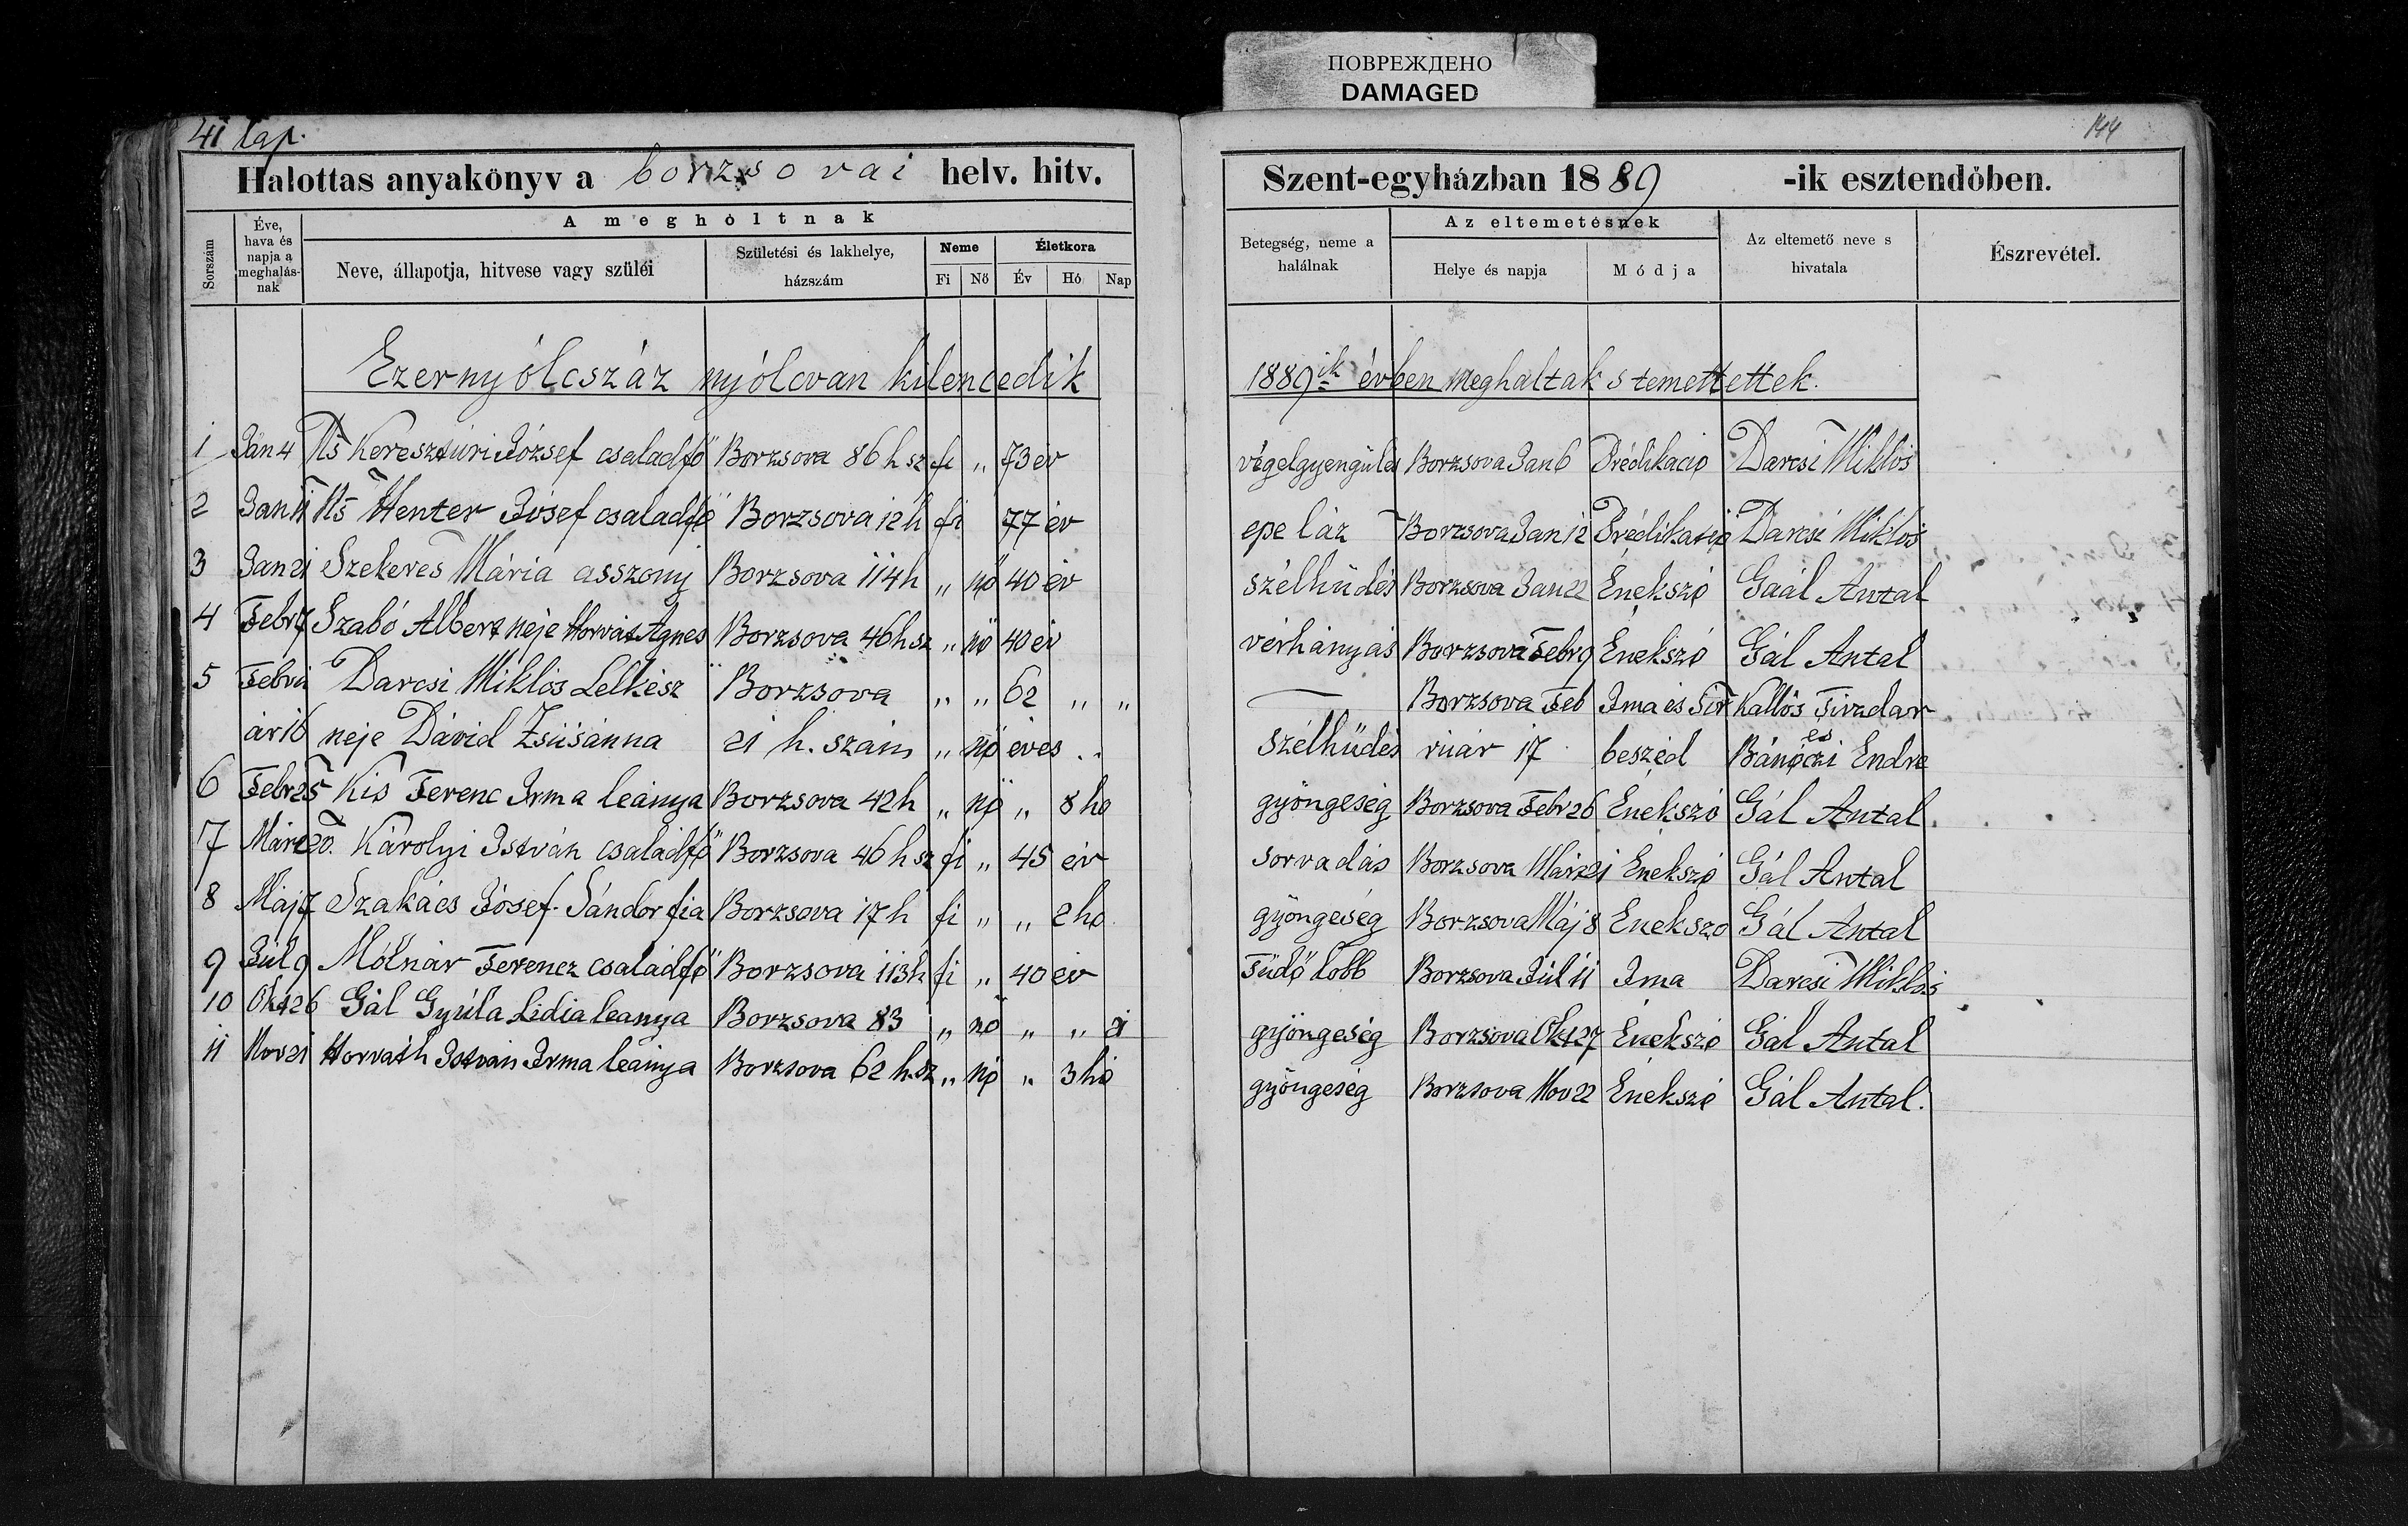 ПОВРЕЖДЕНО
DAMAGED
41 lap.
144
Halottas anyakönyv a borzsovai helv. hitv.
Szent-egyházban 1889 -ik esztendőben.
Sorszám
Éve, hava és napja a meghalás-nak
A meghóltnak
Neve, állapotja, hitvese vagy szüléi
Születési és lakhelye, házszám
Neme
Fi Nő
Életkora
Év Hó Nap
Betegség, neme a halálnak
Az eltemetésnek
Helye és napja
Módja
Az eltemető neve s hivatala
Észrevétel.
Ezernyólcszáz nyólcvan kilencedik
1889ik évben meghaltak s temettettek.
1 Jan 4 Ns Keresztúri József családfő Borzsova 86 h sz fi „ 73 év végelgyengülés Borzsova Jan 6 Prédikáció Darcsi Miklós
2 Jan 11 Ns Henter Jósef családfő Borzsova 12 h fi 77 év epe láz Borzsova Jan 12 Prédikatio Darcsi Miklós
3 Jan 21 Szekeres Mária asszony Borzsova 114 h „ nő 40 év szélhűdés Borzsova Jan 22 Énekszó Gaál Antal
4 Febr 7 Szabó Albert neje Horvát Ágnes Borzsova 46 h sz „ nő 40 év vérhányás Borzsova Febr 9 Énekszó Gál Antal
5 Febru Darcsi Miklós Lelkész Borzsova „ „ 62 „ „ Borzsova Feb Ima és Sír Kallós Tivadar
ár 16 neje Dávid Zsúsánna 21 h. szám „ nő éves „ szélhűdés ruár 17 beszéd és Bánóczi Endre
6 Febr 25 Kis Ferenc Irma leánya Borzsova 42 h „ nő „ 8 hó gyöngeség Borzsova Febr 26 Énekszó Gál Antal
7 Márc 20. Károlyi István családfő Borzsova 46 h sz fi „ 45 év sorvadás Borzsova Márc 21 Énekszó Gál Antal
8 Máj 7 Szakács Jósef Sándor fia Borzsova 17 h fi „ „ 2 hó gyöngeség Borzsova Máj 8 Énekszó Gál Antal
9 Júl 9 Mólnár Ferencz családfő Borzsova 113 h fi „ 40 év Tüdő lobb Borzsova Júl 11 Ima Darcsi Miklós
10 Okt 26 Gál Gyúla Lidia leánya Borzsova 83 „ nő „ „ 21 gyöngeség Borzsova Okt 27 Énekszó Gál Antal
11 Nov 21 Horváth István Irma leánya Borzsova 62 h. sz „ nő „ 3 hó gyöngeség Borzsova Nov 22 Énekszó Gál Antal.